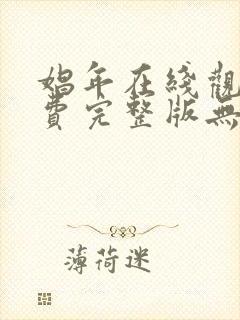 娼年在綫觀
費完整版無
薄荷迷